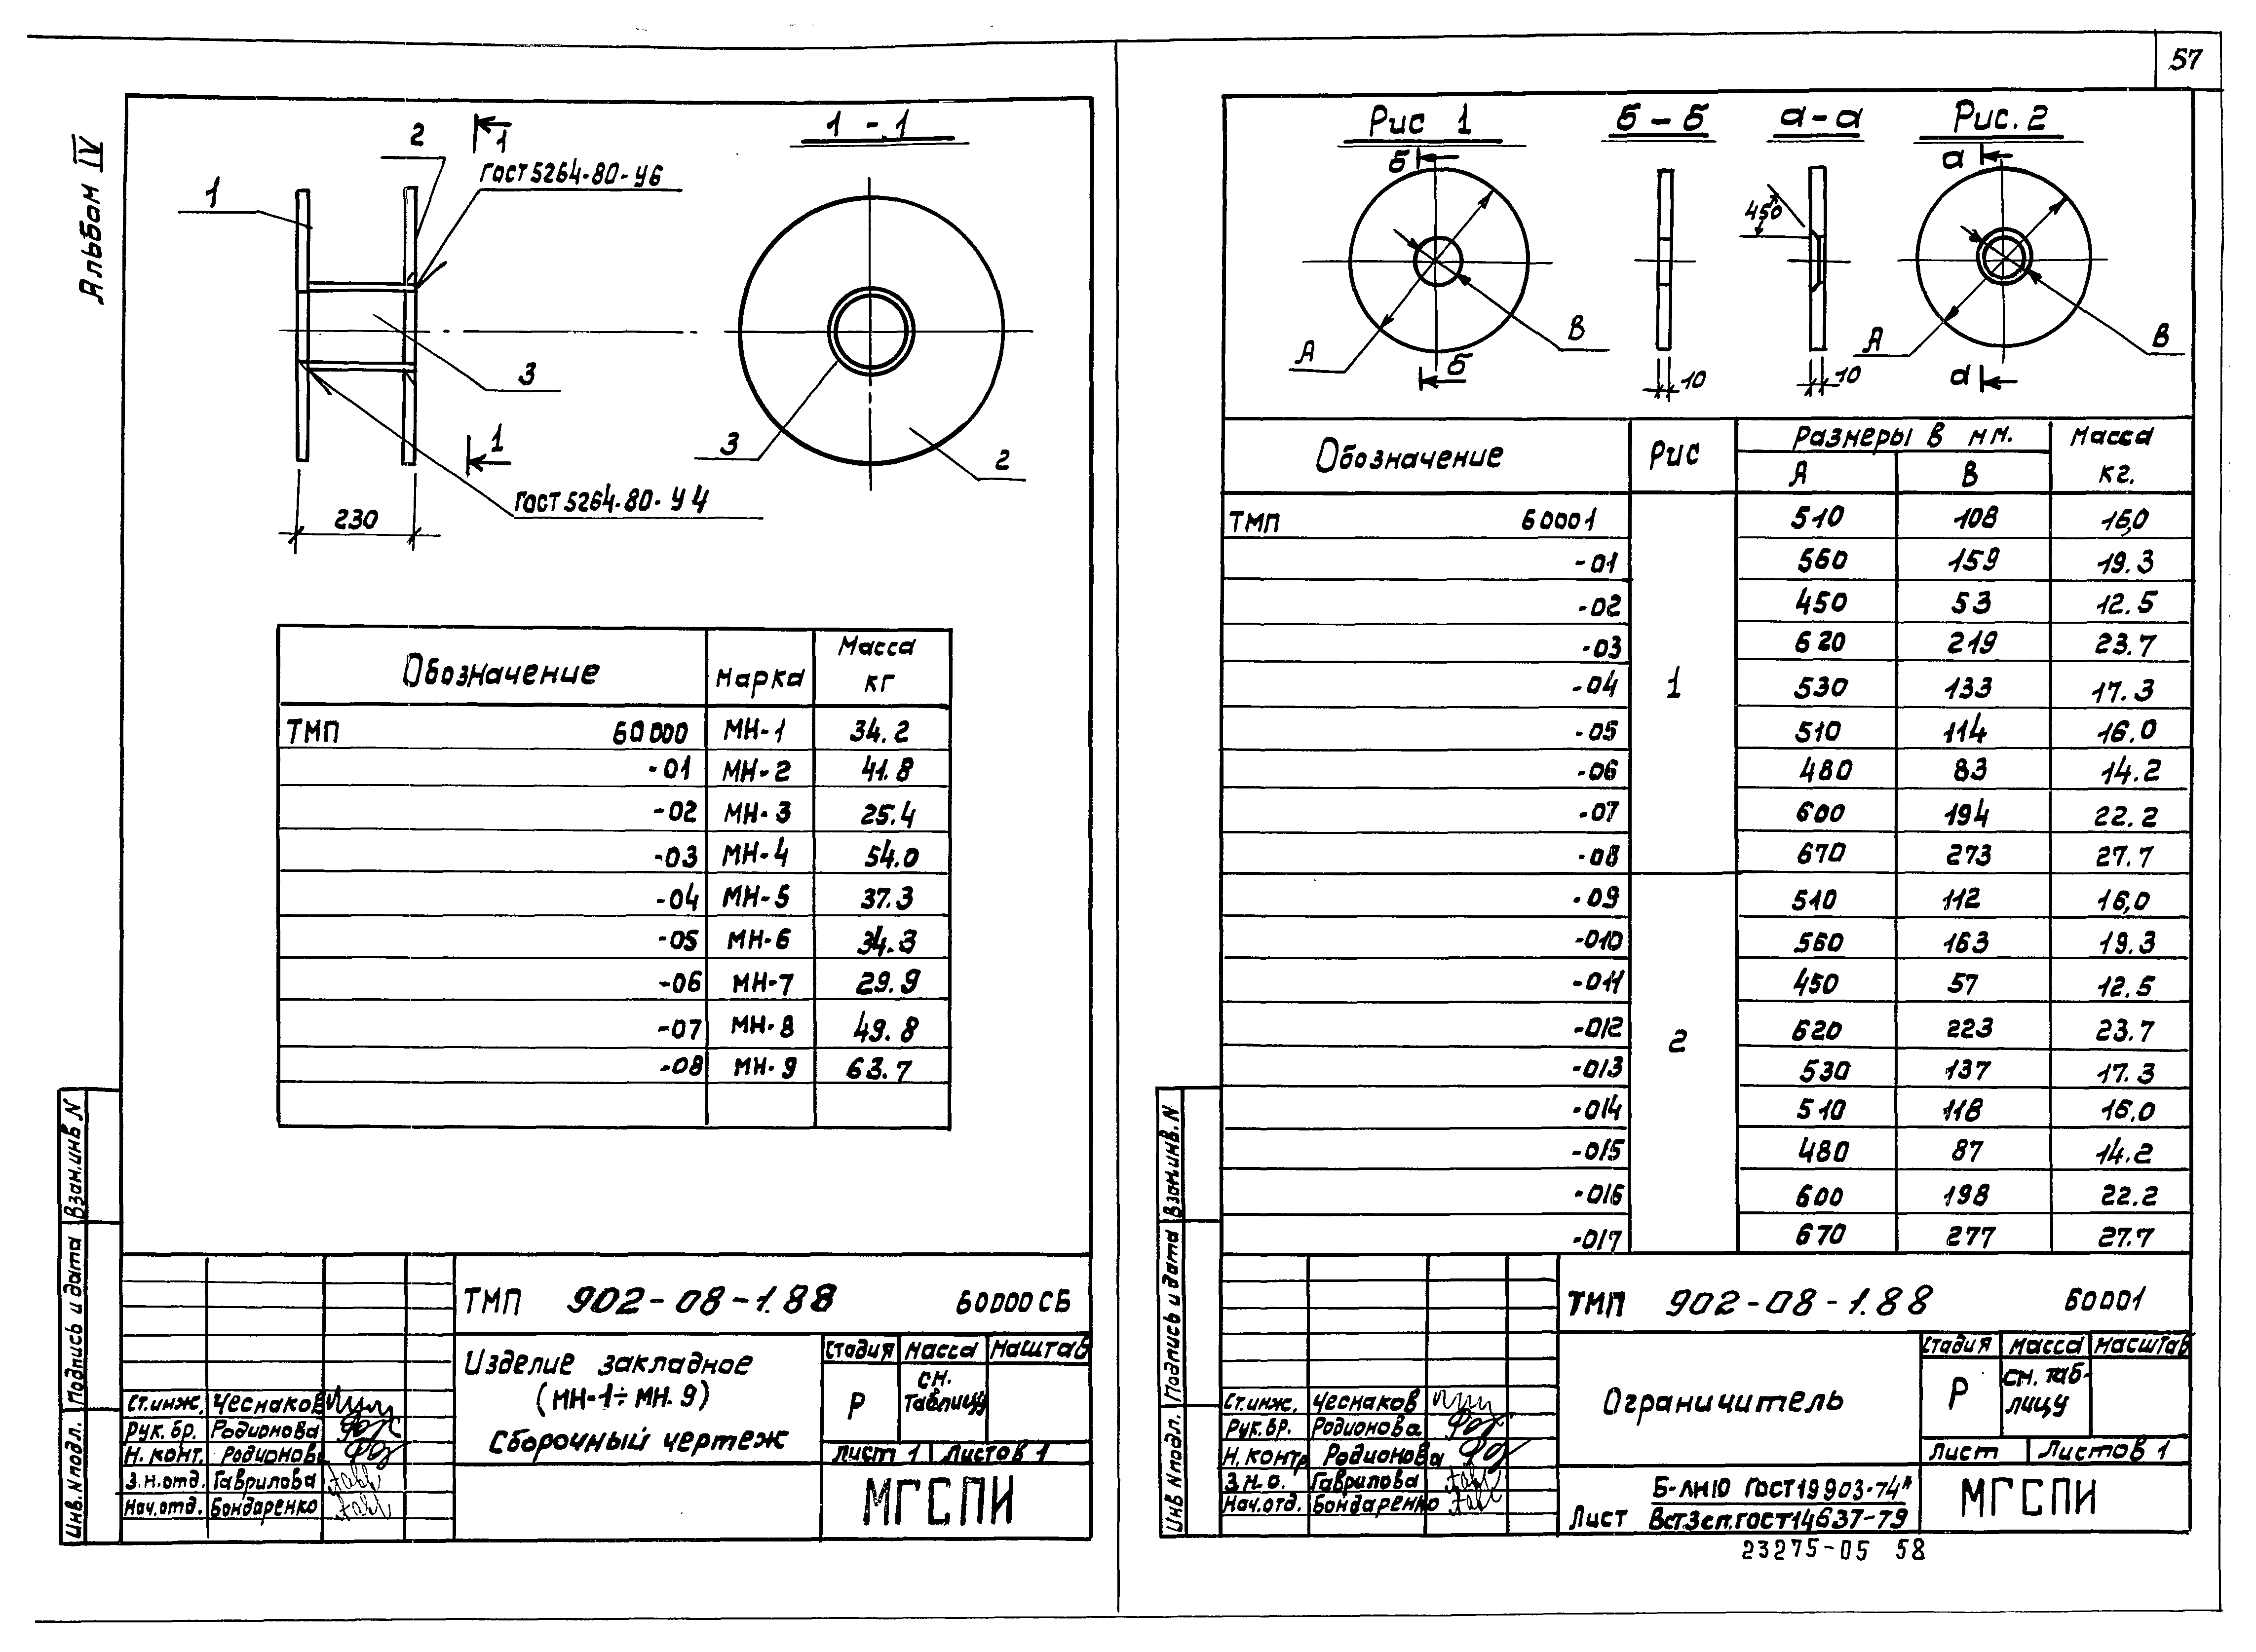 57
Альбом IV
1
2
1
ГОСТ 5264-80-У6
3
1
ГОСТ 5264-80-У4
230
1 - 1
3
2
Обозначение Марка Масса кг
ТМП 60000 МН-1 34.2
-01 МН-2 41.8
-02 МН-3 25.4
-03 МН-4 54.0
-04 МН-5 37.3
-05 МН-6 34.3
-06 МН-7 29.9
-07 МН-8 49.8
-08 МН-9 63.7
Взам.инв N
Подпись и дата
Инв.N подл.
ТМП 902-08-1.88 60000 СБ
Изделие закладное
(МН-1÷МН.9)
Сборочный чертеж
Стадия Масса Маштаб
Р см. таблицу
Лист 1 Листов 1
МГСПИ
Ст.инж. Чеснаков
Рук.бр. Родионова
Н.конт. Родионова
З.н.отд. Гаврилова
Нач.отд. Бондаренко
Рис 1
Б - Б
а - а
Рис. 2
Б
Б
А
В
10
45°
10
а
а
А
В
Обозначение Рис Размеры в мм. Масса кг.
А В
ТМП 60001 1 510 108 16,0
-01 560 159 19.3
-02 450 53 12.5
-03 620 219 23.7
-04 530 133 17.3
-05 510 114 16.0
-06 480 83 14.2
-07 600 194 22.2
-08 670 273 27.7
-09 2 510 112 16,0
-010 560 163 19.3
-011 450 57 12.5
-012 620 223 23.7
-013 530 137 17.3
-014 510 118 16,0
-015 480 87 14.2
-016 600 198 22.2
-017 670 277 27.7
Взам.инв.N
Подпись и дата
Инв N подл.
ТМП 902-08-1.88 60001
Ограничитель
Стадия Масса Масштаб
Р см. таб-
лицу
Лист Листов 1
Ст.инж. Чеснаков
Рук.бр. Родионова
Н.контр Родионова
З.н.о. Гаврилова
Нач.отд. Бондаренко
Лист Б-ЛН10 ГОСТ19903-74*
Вст3сп.ГОСТ14637-79
МГСПИ
23275-05 58